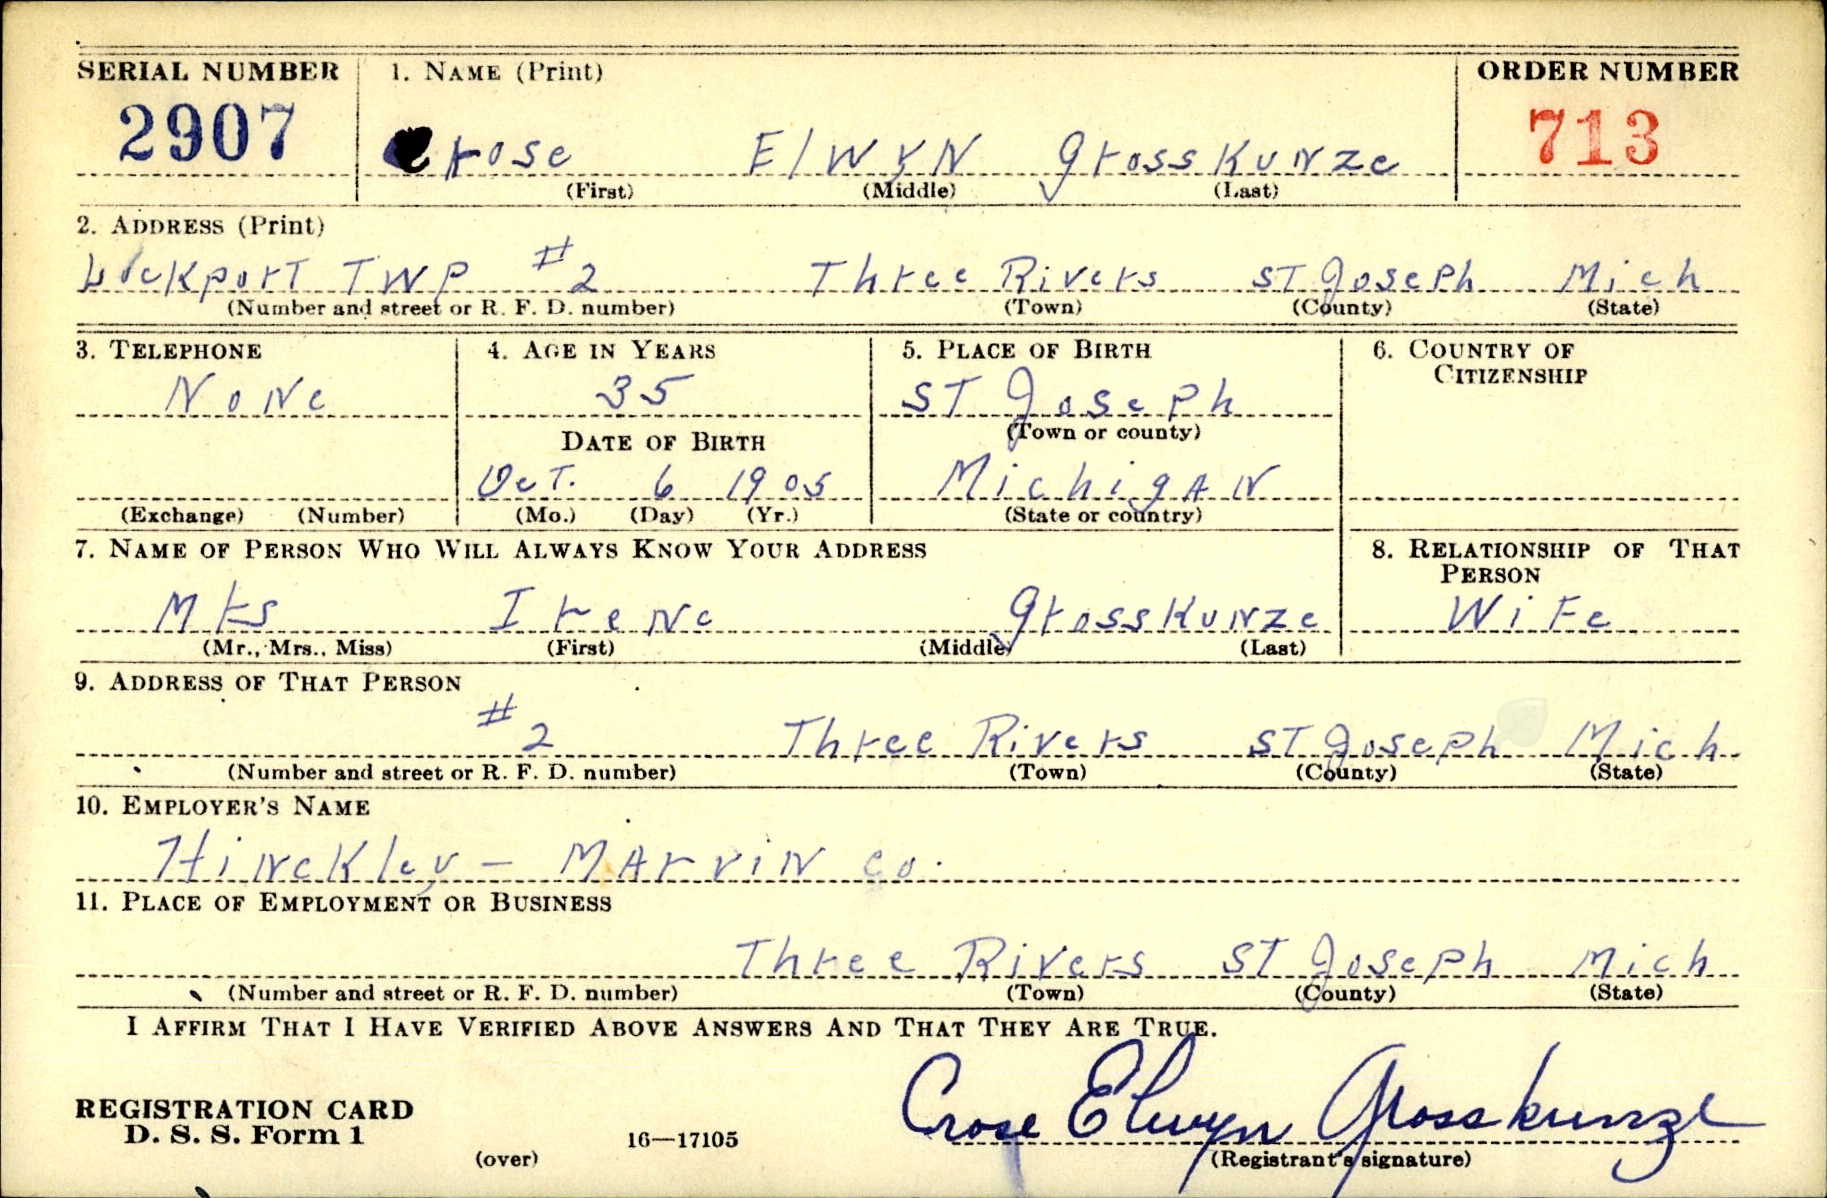 SERIAL NUMBER 1. NAME (Print) ORDER NUMBER
2907 Crose Elwyn Grosskunze 713
(First) (Middle) (Last)
2. ADDRESS (Print)
Lockport Twp #2 Three Rivers St Joseph Mich
(Number and street or R. F. D. number) (Town) (County) (State)
3. TELEPHONE 4. AGE IN YEARS 5. PLACE OF BIRTH 6. COUNTRY OF CITIZENSHIP
None 35 St Joseph
(Town or county)
DATE OF BIRTH
Oct. 6 1905 Michigan
(Exchange) (Number) (Mo.) (Day) (Yr.) (State or country)
7. NAME OF PERSON WHO WILL ALWAYS KNOW YOUR ADDRESS 8. RELATIONSHIP OF THAT PERSON
Mrs Irene Grosskunze Wife
(Mr., Mrs., Miss) (First) (Middle) (Last)
9. ADDRESS OF THAT PERSON
#2 Three Rivers St Joseph Mich
(Number and street or R. F. D. number) (Town) (County) (State)
10. EMPLOYER'S NAME
Hinckley – Marvin Co.
11. PLACE OF EMPLOYMENT OR BUSINESS
Three Rivers St Joseph Mich
(Number and street or R. F. D. number) (Town) (County) (State)
I AFFIRM THAT I HAVE VERIFIED ABOVE ANSWERS AND THAT THEY ARE TRUE.
Crose Elwyn Grosskunze
REGISTRATION CARD
D. S. S. Form 1 16—17105
(over) (Registrant's signature)